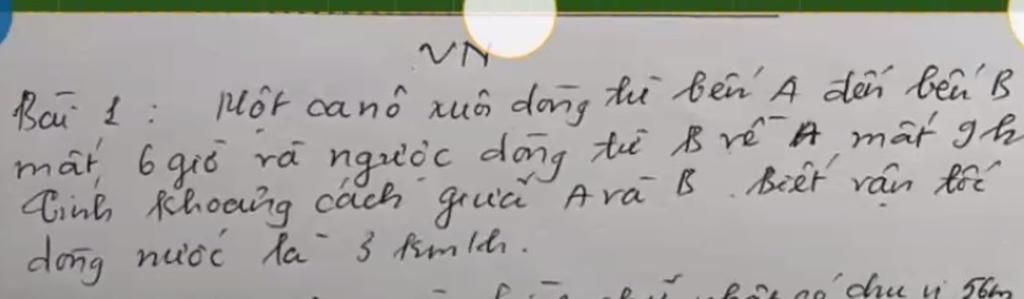 VN
Bài 1 : Một canô xuôi dòng từ bến A đến bến B
mất 6 giờ và ngược dòng từ B về A mất 9h
Tính khoảng cách giữa A và B. Biết vận tốc
dòng nước là 3 km/h.
chu vi 56m